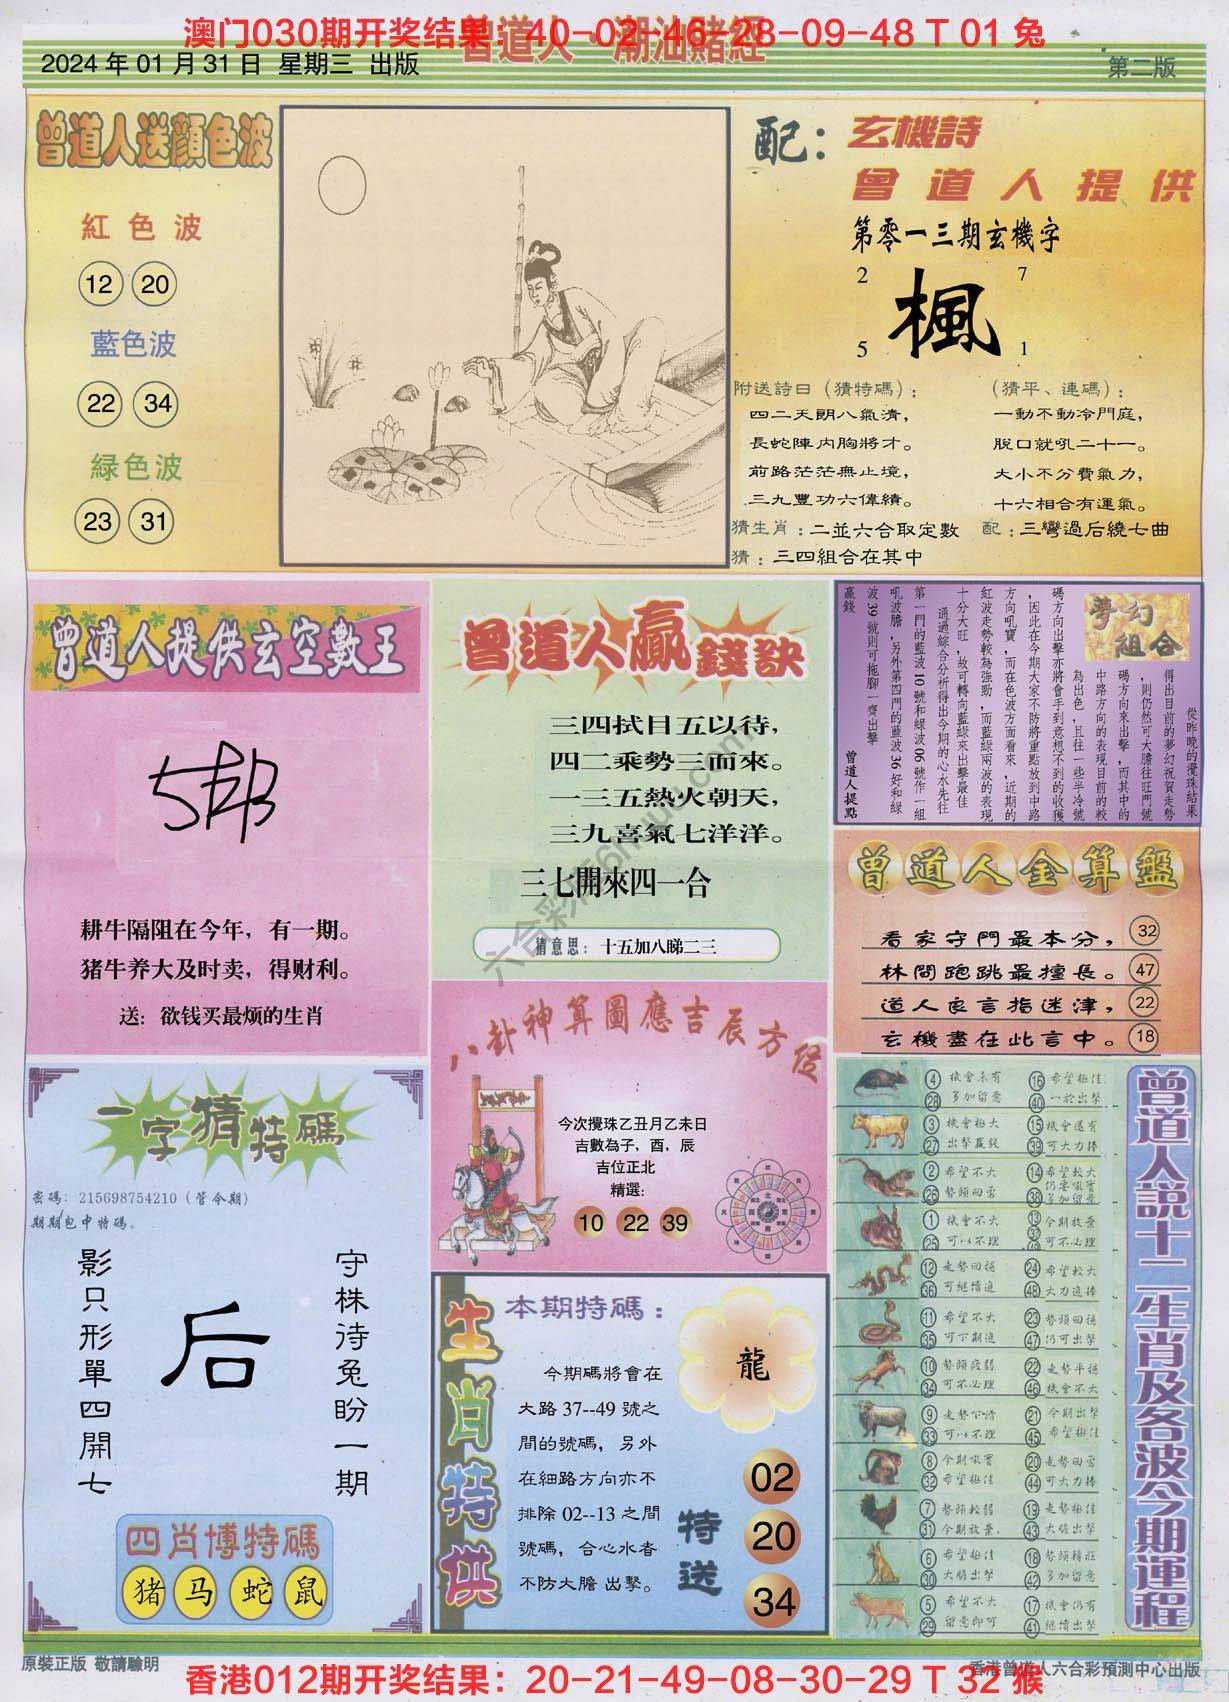 澳门030期开奖结果：40-02-46-28-09-48 T 01 兔
曾道人·潮汕賭經
2024 年 01 月 31 日 星期三 出版
第二版
曾道人送顔色波
紅 色 波
12 20
藍色波
22 34
緑色波
23 31
配：
玄機詩
曾 道 人 提 供
第零一三期玄機字
2 7
楓
5 1
附送詩日（猜特碼）：
四二天朗八氣清，
長蛇陣内胸將才。
前路茫茫無止境，
三九豐功六偉績。
（猜平、連碼）：
一動不動冷門庭，
脫口就吼二十一。
大小不分費氣力，
十六相合有運氣。
猜生肖：二並六合取定數
配：三彎過后繞七曲
猜：三四組合在其中
曾道人提供玄空數王
耕牛隔阻在今年，有一期。
猪牛养大及时卖，得财利。
送：欲钱买最烦的生肖
曾道人贏錢訣
三四拭目五以待，
四二乘勢三而來。
一三五熱火朝天，
三九喜氣七洋洋。
三七開來四一合
猜意思：十五加八睇二三
六合彩库6huu.com
夢幻
組合
從昨晚的攪珠結果
得出目前的夢幻祝賀走勢
，則仍然可大膽往旺門號
碼方向來出擊，而其中的
中路方向的表現目前的較
為出色，且往一些半冷號
碼方向出擊亦將會手到意想不到的收獲
，因此在今期大家不防將重點放到中路
方向吼寶，而在色波方面看來，近期的
紅波走勢較為強勁，而藍綠兩波的表現
十分大旺，故可轉向藍綠來出擊最佳
通過綜合分析得出今期的心水先往
第一門的藍波10號和綠波06號作一組
吼波膽，另外第四門的藍波36好和綠
波39號則可拖腳一齊出擊
贏錢
曾道人提點
曾道人金算盤
看家守門最本分， 32
林間跑跳最擅長。 47
道人良言指迷津， 22
玄機盡在此言中。 18
八卦神算圖應吉辰方位
今次攪珠乙丑月乙未日
吉數為子，酉，辰
吉位正北
精選：
10 22 39
一字猜特碼
密碼：215698754210（管今期）
期期包中特碼。
影只形單四開七
后
守株待兔盼一期
四肖博特碼
猪 马 蛇 鼠
生肖特供
本期特碼：
龍
今期碼將會在
大路 37--49 號之
間的號碼，另外
在細路方向亦不
排除 02--13 之間
號碼，合心水者
不防大膽 出擊。
特送
02
20
34
曾道人説十二生肖及各波今期運程
4 機會未有 16 希望極佳
28 多加留意 40 一於出擊
3 機會極大 15 機會還有
27 出擊贏錢 39 可大力捧
2 希望不大 14 希望較大
仍要吼實
26 勢頭回勇 38 多加留意
1 機會不大 13 今期放棄
37
25 可以不理 49 可不必理
12 走勢回穩 24 希望較大
36 可繼續追 48 大力追捧
11 希望不大 23 勢頭回穩
35 可下期追 47 仍可出擊
10 勢頭疲弱 22 走勢平穩
34 可不必理 46 機會不大
9 走勢下滑 21 今期出擊
33 可以不理 45 希望極佳
8 今期吼實 20 走勢回勇
32 希望極佳 44 可大力捧
7 勢頭較弱 19 走勢極佳
31 今期放棄. 43 大膽出擊
6 希望極佳 18 勢頭轉旺
30 大膽出擊 42 多加留意
5 希望不大 17 機會仍有
29 留意即可 41 繼續出擊
原裝正版 敬請驗明
香港曾道人六合彩預測中心出版
香港012期开奖结果：20-21-49-08-30-29 T 32 猴